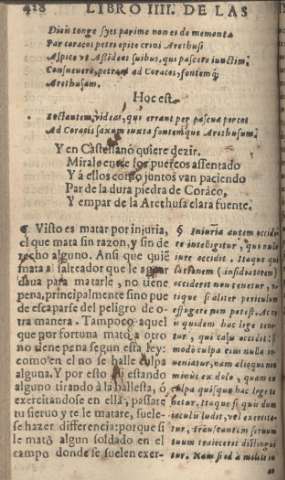 428 LIBRO IIII. DE LAS
Par coraços petre epite crini Arethusi
Hoc est.
Y en Castellano quiere dezir.
Mirale entre los puercos assentado
Y a ellos como juntos van paciendo
Par de la dura piedra de Coraco,
Y empar de la Arethusa clara fuente.
¶ Visto es matar por injuria,
el que mata sin razon, y sin de
recho alguno. Ansi que quiē
mata a salteador que le aguar
daua para matarle, no tiene
pena, principalmente sino pue
de escaparse del peligro de o-
tra manera. Tampoco aquel
que por fortuna mato a otro
no tiene pena segun esta ley:
como en el no se halle culpa
alguna. Y por esto si estando
alguno tirando a la ballesta, ó
exercitandose en ella, passare
tu sieruo y te le matare, suele-
se hazer differencia: porque si
le mató algun soldado en el
campo donde se suelen exer-
§ Iniuria autem occide
re intelligitur, qui nullo
iure occidit. Itaque qui
latronem (insidiatorem)
occiderit non tenetur, v-
tique si aliter periculum
effugere non potest. Ac ne
is quidem hac lege tene-
tur, qui casu occidit: si
modo culpa eius nulla in
ueniatur, nam alioquin
minus ex dolo, quam ex
culpa quisque hac lege te
netur. Itaque si quis dum
iaculis ludit, vel exercita-
tur, transeuntem seruum
tuum traiecerit distingui
tur. Nam si id a milite in